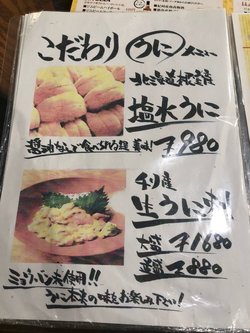 こだわり うに メニュー
北海道根室産
塩水うに
¥980
チリ産
生うに
大盛 ¥1680
並盛 ¥880
ミョウバン未使用!!
うに本来の味をお楽しみ下さい!